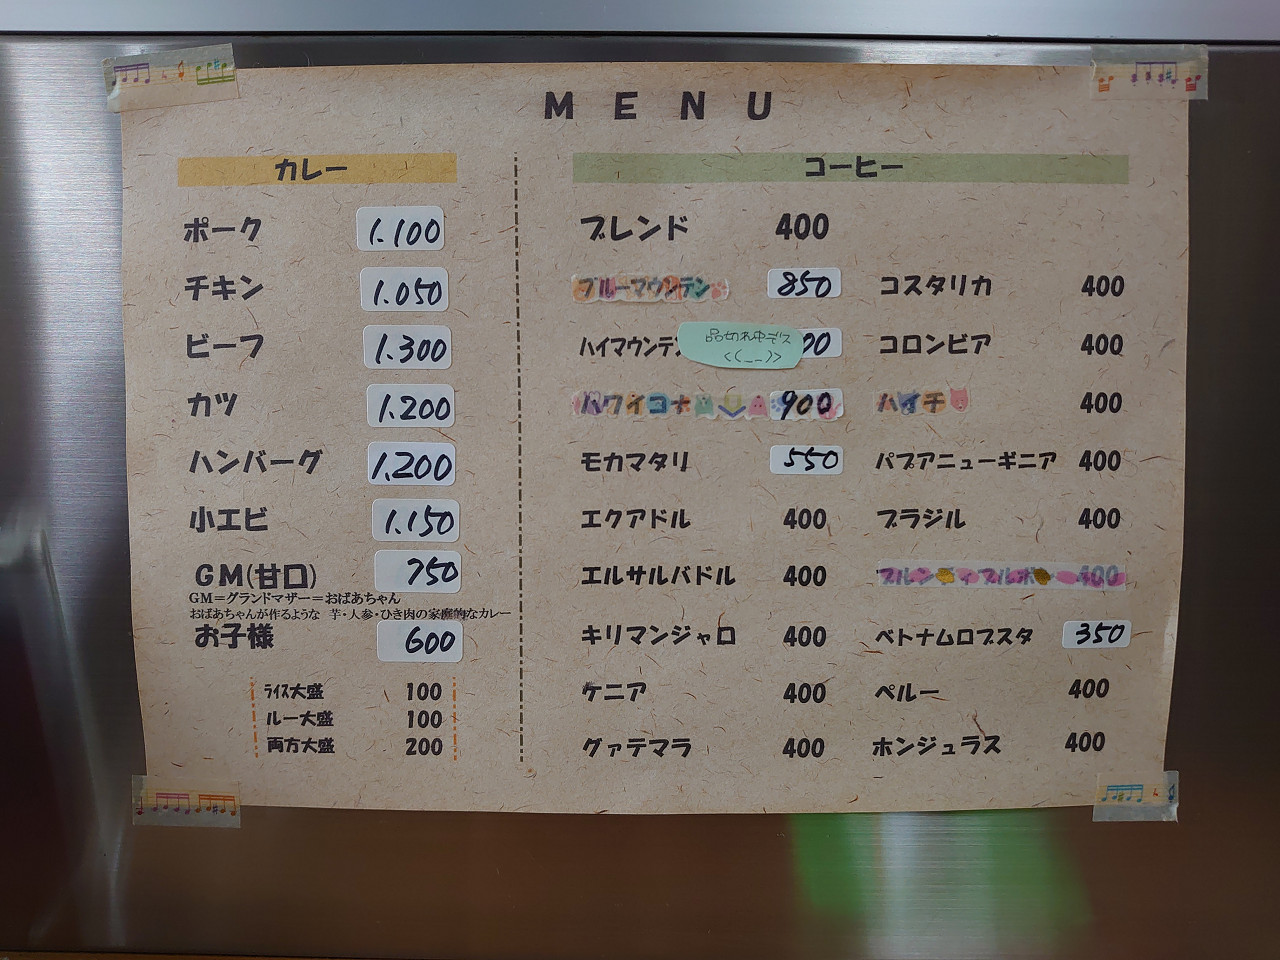 MENU
カレー
ポーク 1.100
チキン 1.050
ビーフ 1.300
カツ 1.200
ハンバーグ 1.200
小エビ 1.150
GM(甘口) 750
GM=グランドマザー=おばあちゃん
おばあちゃんが作るような 芋・人参・ひき肉の家庭的なカレー
お子様 600
ライス大盛 100
ルー大盛 100
両方大盛 200
コーヒー
ブレンド 400
ブルーマウンテン 850 コスタリカ 400
ハイマウンテン 品切れ中デス 00 コロンビア 400
<(_ _)>
ハワイコナ 900 ハイチ 400
モカマタリ 550 パプアニューギニア 400
エクアドル 400 ブラジル 400
エルサルバドル 400 ブルンディブルボン 400
キリマンジャロ 400 ベトナムロブスタ 350
ケニア 400 ペルー 400
グァテマラ 400 ホンジュラス 400